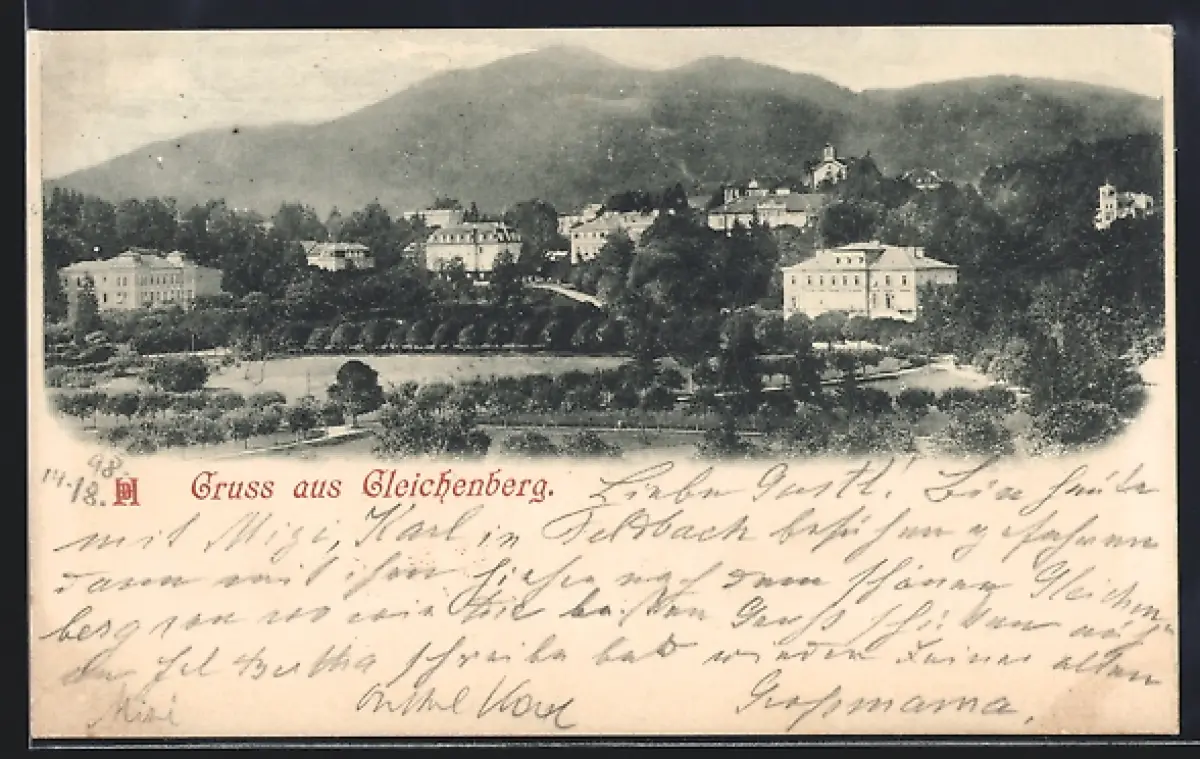 14. 98.
18.
Gruss aus Gleichenberg.
Liebe Gustl! Bin heute
mit Mizi, Karl in Feldbach besuchen gefahren
dann mit ihnen hieher nach dem schönen Gleichen-
berg von wo wir Dir die besten Grüß schicken auch
der Frl Bertha schreibe bald wieder Deiner alten
Großmama.
Mizi
Onkel Karl